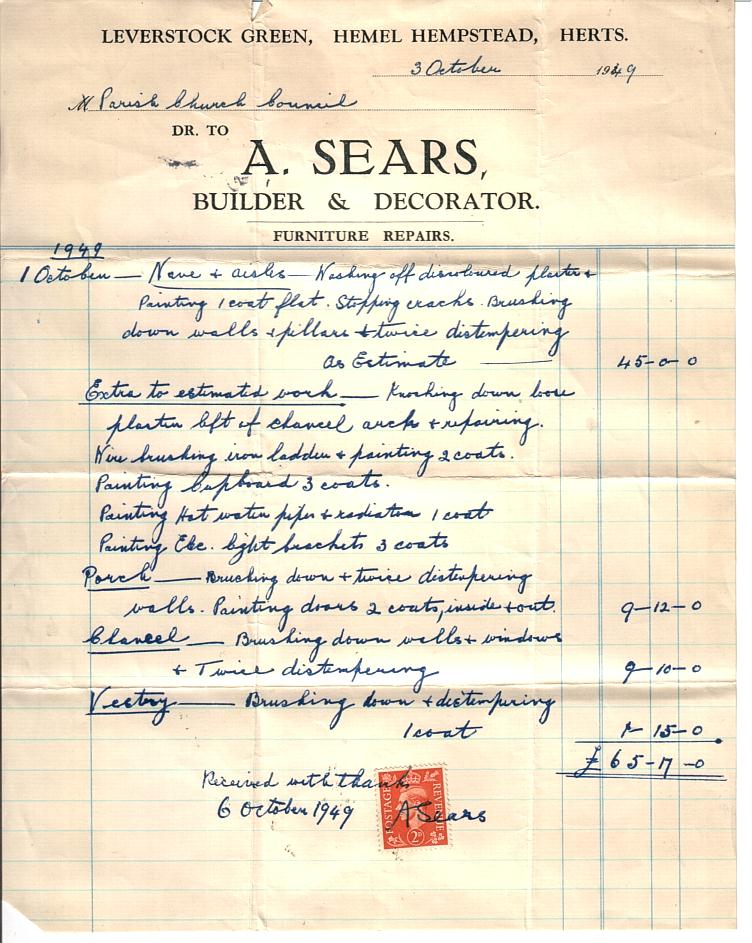 LEVERSTOCK GREEN, HEMEL HEMPSTEAD, HERTS.
3 October 1949
M Parish Church Council
DR. TO
A. SEARS,
BUILDER & DECORATOR.
FURNITURE REPAIRS.
1949
1 October — Nave & aisles — Washing off discoloured plaster &
Painting 1 coat flat. Stopping cracks. Brushing
down walls & pillars & twice distempering
As Estimate — 45-0-0
Extra to estimated work — Knocking down loose
plaster left of chancel arch & repairing.
Wire brushing iron ladder & painting 2 coats.
Painting Cupboard 3 coats.
Painting Hot water pipes & radiators 1 coat
Painting Elec. light brackets 3 coats
Porch — Brushing down & twice distempering
walls. Painting doors 2 coats, inside & out. 9-12-0
Chancel — Brushing down walls & windows
& Twice distempering 9-10-0
Vestry — Brushing down & distempering
1 coat 1-15-0
£65-17-0
Received with thanks
6 October 1949 A Sears
POSTAGE REVENUE
2D